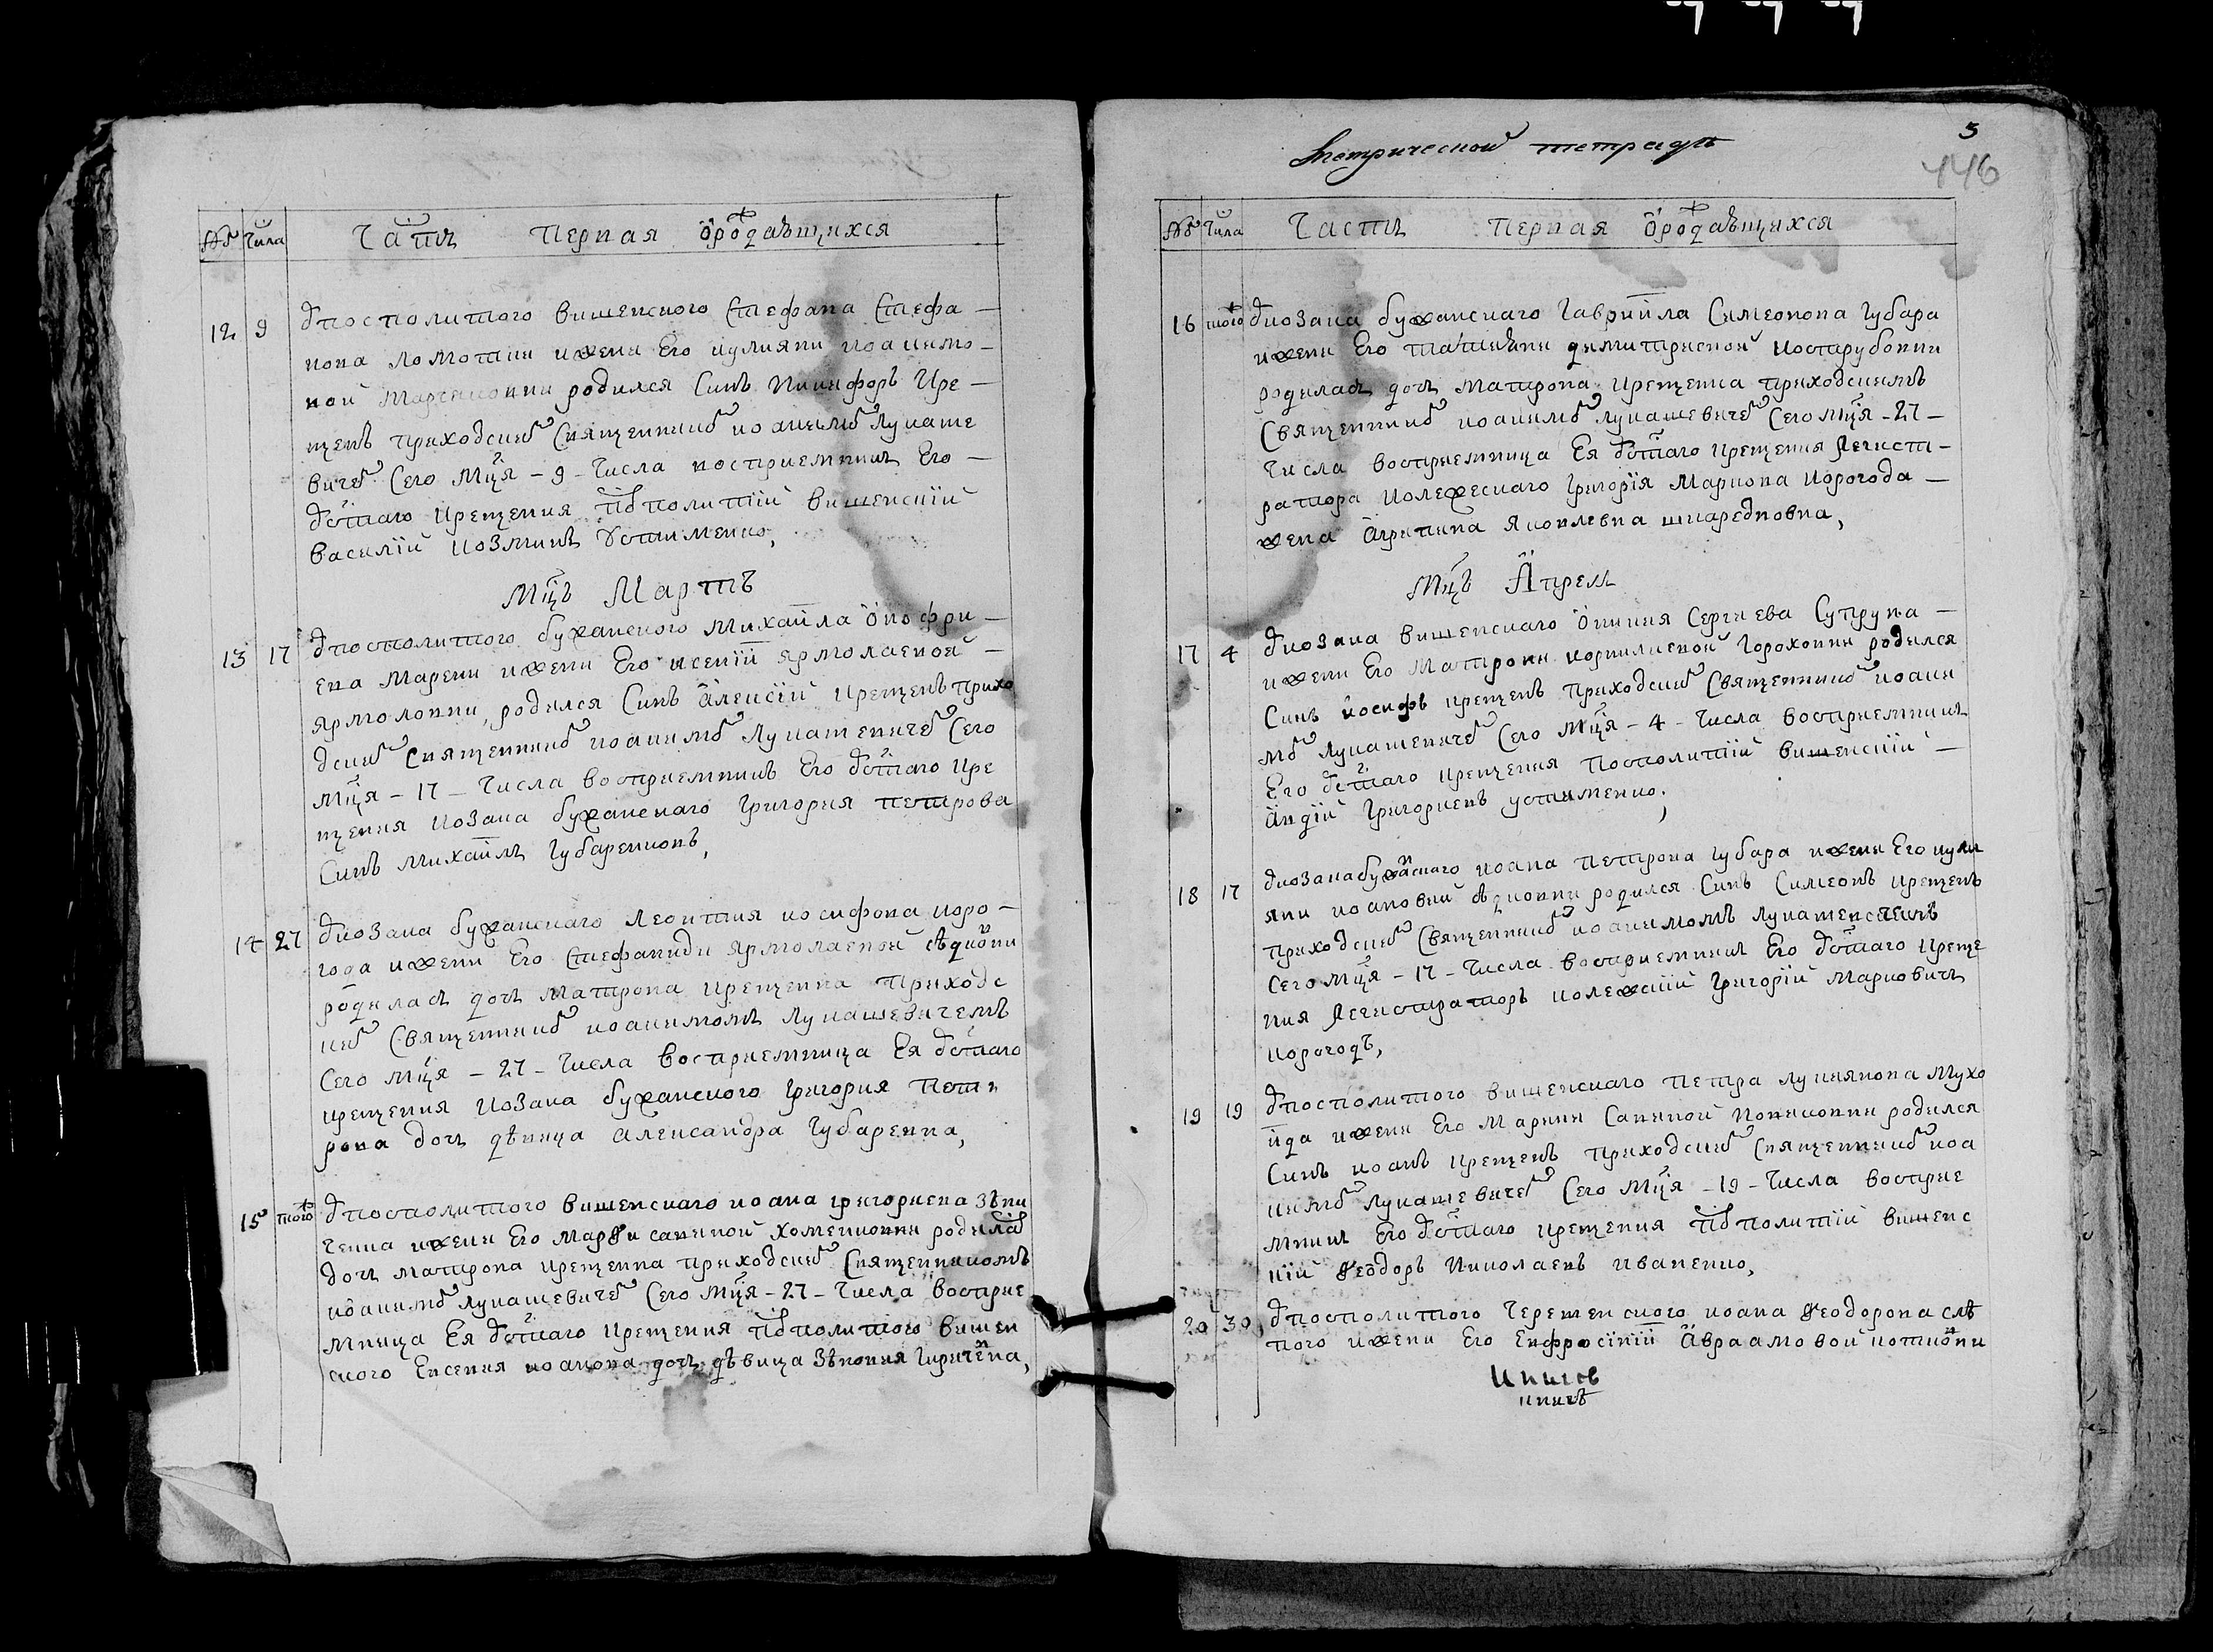 № Числа Часть Первая ѽ родавшихся
12 9 У посполитого вишенского Стефана Стефа-
нова и жени Его иулияни иоакимо-
вой родился Синъ Никифоръ Кре-
щенъ приходским Священником иоакимом Лукаше
вичем Сего Мця - 9 - Числа восприемникъ Его -
от стаго крещения посполитий вишенский
василий козминъ Устименко,
Мцъ Мартъ
13 17 У посполитого бужанского Михаила Онофри-
ева Марени и жени Его ксении ярмолаевой -
ярмоловни, родился Синъ Алексий крещенъ прихо
дским Священником иоакимом Лукашевичем Сего
Мця - 17 - Числа восприемникъ Его от стаго кре
щения козака бужанского Григория петрова
Синъ михаилъ Губаренковъ,
14 27 У козака бужанского Леонтия иосифова коро-
года и жени Его Стефаниди ярмолаевой
родилась дочь Матрона крещенна приходс
ким Священником иоакимомъ лукашевичемъ
Сего мця - 27 - Числа восприемница Ея от стаго
крещения козака бужанского Григория пет
рова дочь дѣвица Александра Губаренна,
15 того У посполитого вишенскаго иоана григориева
и жени Его Марѳи савиной хоменковни родилась
дочь матрона крещенна приходским Священникомъ
иоакимом лукашевичем Сего мця - 27 - Числа восприе
мница Ея от стаго крещения посполитого вишен
ского Евсевия иоанова дочь дѣвица
Метрической тетради
3
446
№ Числа Часть Первая ѽ родавшихся
16 того У козака бужанскаго Гаврийла Симеонова Губара
и жени Его татияни димитриевой костирубовни
родилась дочь Матрона крещенна приходскимъ
Священником иоакимом лукашевичем Сего мця - 27 -
Числа восприемница Ея от стаго крещения Регист-
ратора колежескаго Григорїя Маркова Корогода -
жена Агрипина яковлевна шкаредновна,
Мцъ Апрель
17 4 У козака вишенскаго Сергиева Супруна -
и жени Его Матрони корнилиевой Гороховни родился
Синъ иосифъ крещенъ приходским Священником иоаки
мом лукашевичем Сего мця - 4 - Числа восприемникъ
Его от стаго крещения посполитий вишенский -
Григориевъ устименко,
18 17 У козака бужанскаго иоана петрова Губара и жени Его иули
яни иоановни родился Синъ Симеонъ крещенъ
приходским Священником иоакимомъ лукашевичемъ
Сего мця - 17 - Числа восприемникъ Его от стаго креще
ния Регистраторъ колежский Григорий Марковичъ
корогодъ,
19 19 У посполитого вишенскаго петра лукиянова Мухо
йда и жени Его Марини Савиной родился
Синъ иоанъ крещенъ приходским Священником иоа
кимом лукашевичем Сего мця - 19 - Числа восприе
мникъ Его от стаго крещения посполитий вишенс
кий Ѳеодоръ Николаевъ иваненко,
20 30 У посполитого Черешенского иоана Ѳеодорова слѣ
пого и жени Его Евфросинии Авраамовой